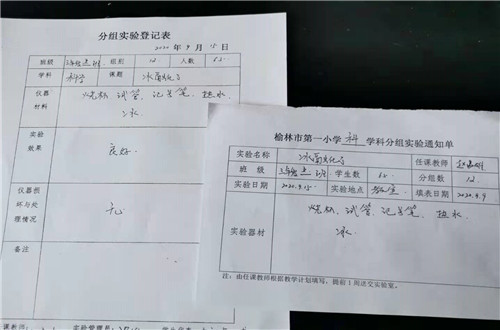 分组实验登记表
2020年9月15日
班级 组别 12 人数 62
学科 科学 课题 冰融化了
仪器材料 烧杯、试管、记号笔、热水、冰
实验效果 良好
仪器损坏与处理情况 无
备注
榆林市第一小学 科 学科分组实验通知单
实验名称 冰融化了 任课教师
班级 学生数 62 分组数 12
实验日期 2020.9.15 实验地点 教室 填表日期 2020.9.9
实验器材 烧杯、试管、记号笔、热水、冰
注:由任课教师根据教学计划填写,提前1周送交实验室。
实验管理员: